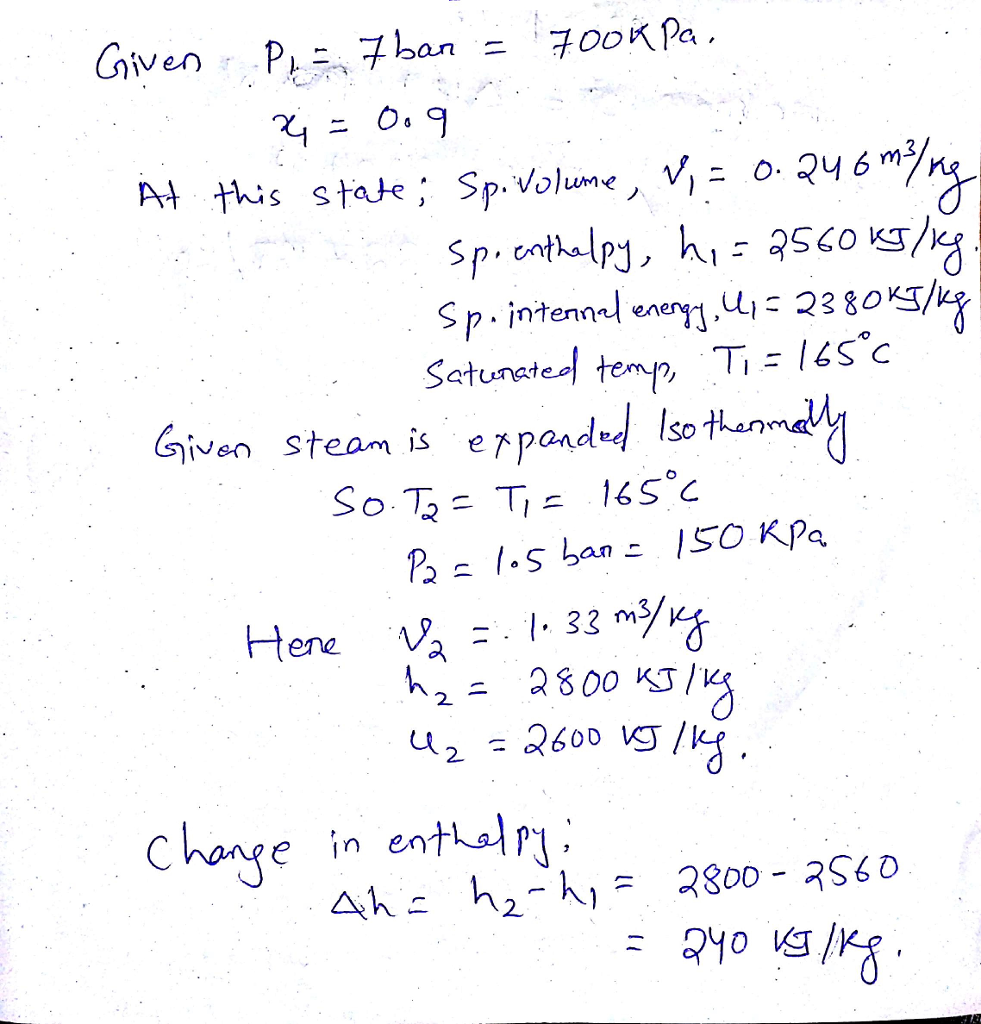 Given P₁ = 7 bar = 700 KPa.
x₁ = 0.9
At this state; Sp. Volume, v₁ = 0.246 m³/kg
Sp. enthalpy, h₁ = 2560 KJ/kg.
Sp. internal energy, u₁ = 2380 KJ/kg
Saturated temp, T₁ = 165°C
Given steam is expanded Isothermally
So. T₂ = T₁ = 165°C
P₂ = 1.5 bar = 150 KPa
Here v₂ = 1.33 m³/kg
h₂ = 2800 KJ/kg
u₂ = 2600 KJ/kg.
Change in enthalpy;
Δh = h₂ - h₁ = 2800 - 2560
= 240 KJ/kg.